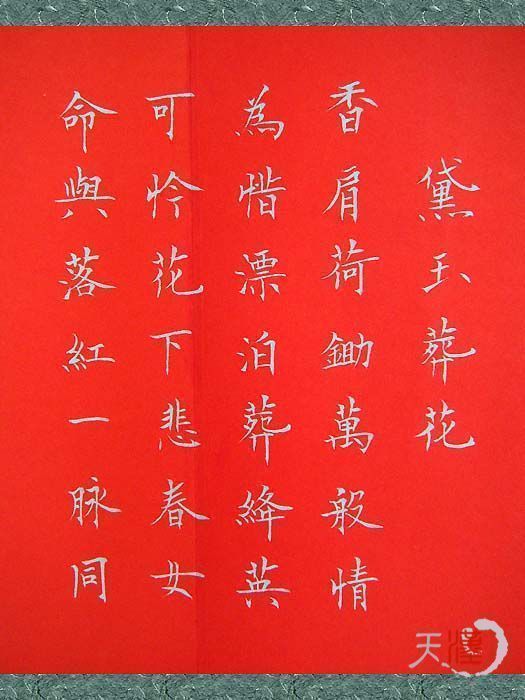 黛玉葬花
香肩荷鋤萬般情
為惜漂泊葬絳英
可怜花下悲春女
命與落紅一脉同
天漢